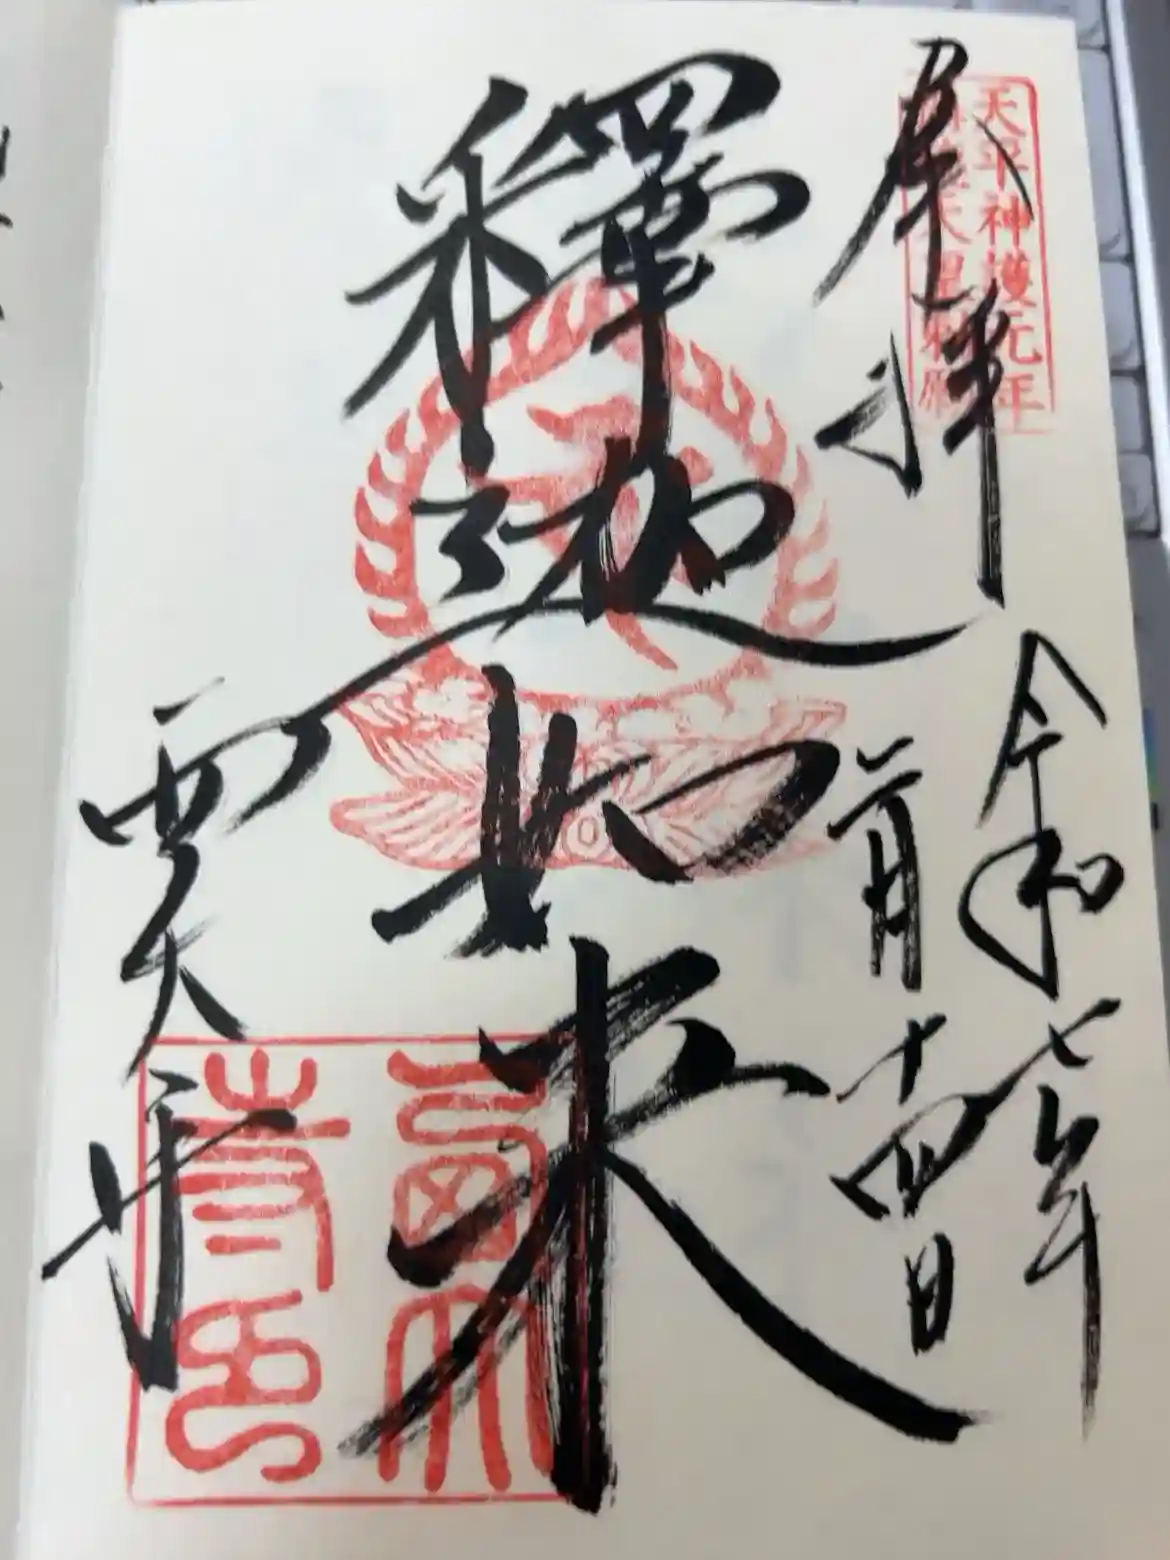 奉拝
天平神護元年
稱徳天皇勅願
令和七年
二月十四日
釋迦如来
西大寺
西大寺印